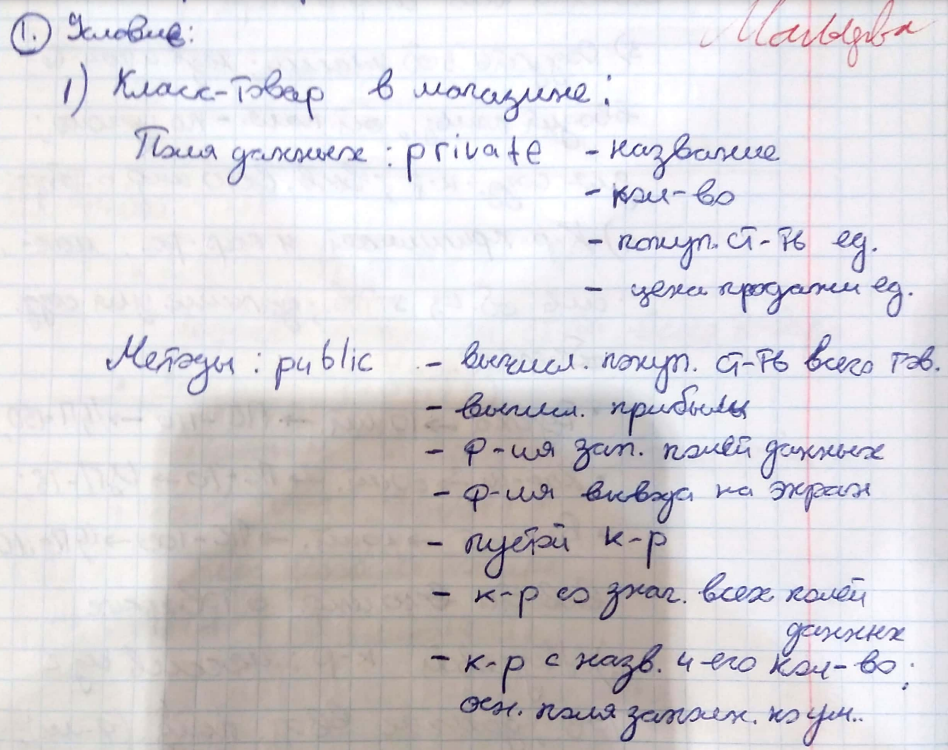 1. Условие:
Мальцева
1) Класс-товар в магазине:
Поля данных: private - название
- кол-во
- покуп. ст-ть ед.
- цена продажи ед.
Методы: public - вычисл. покуп. ст-ть всего тов.
- вычисл. прибыль
- ф-ия зап. полей данных
- ф-ия вывода на экран
- пустой к-р
- к-р со знач. всех полей
данных
- к-р с назв. и его кол-во;
осн. поля заполн. по ум..